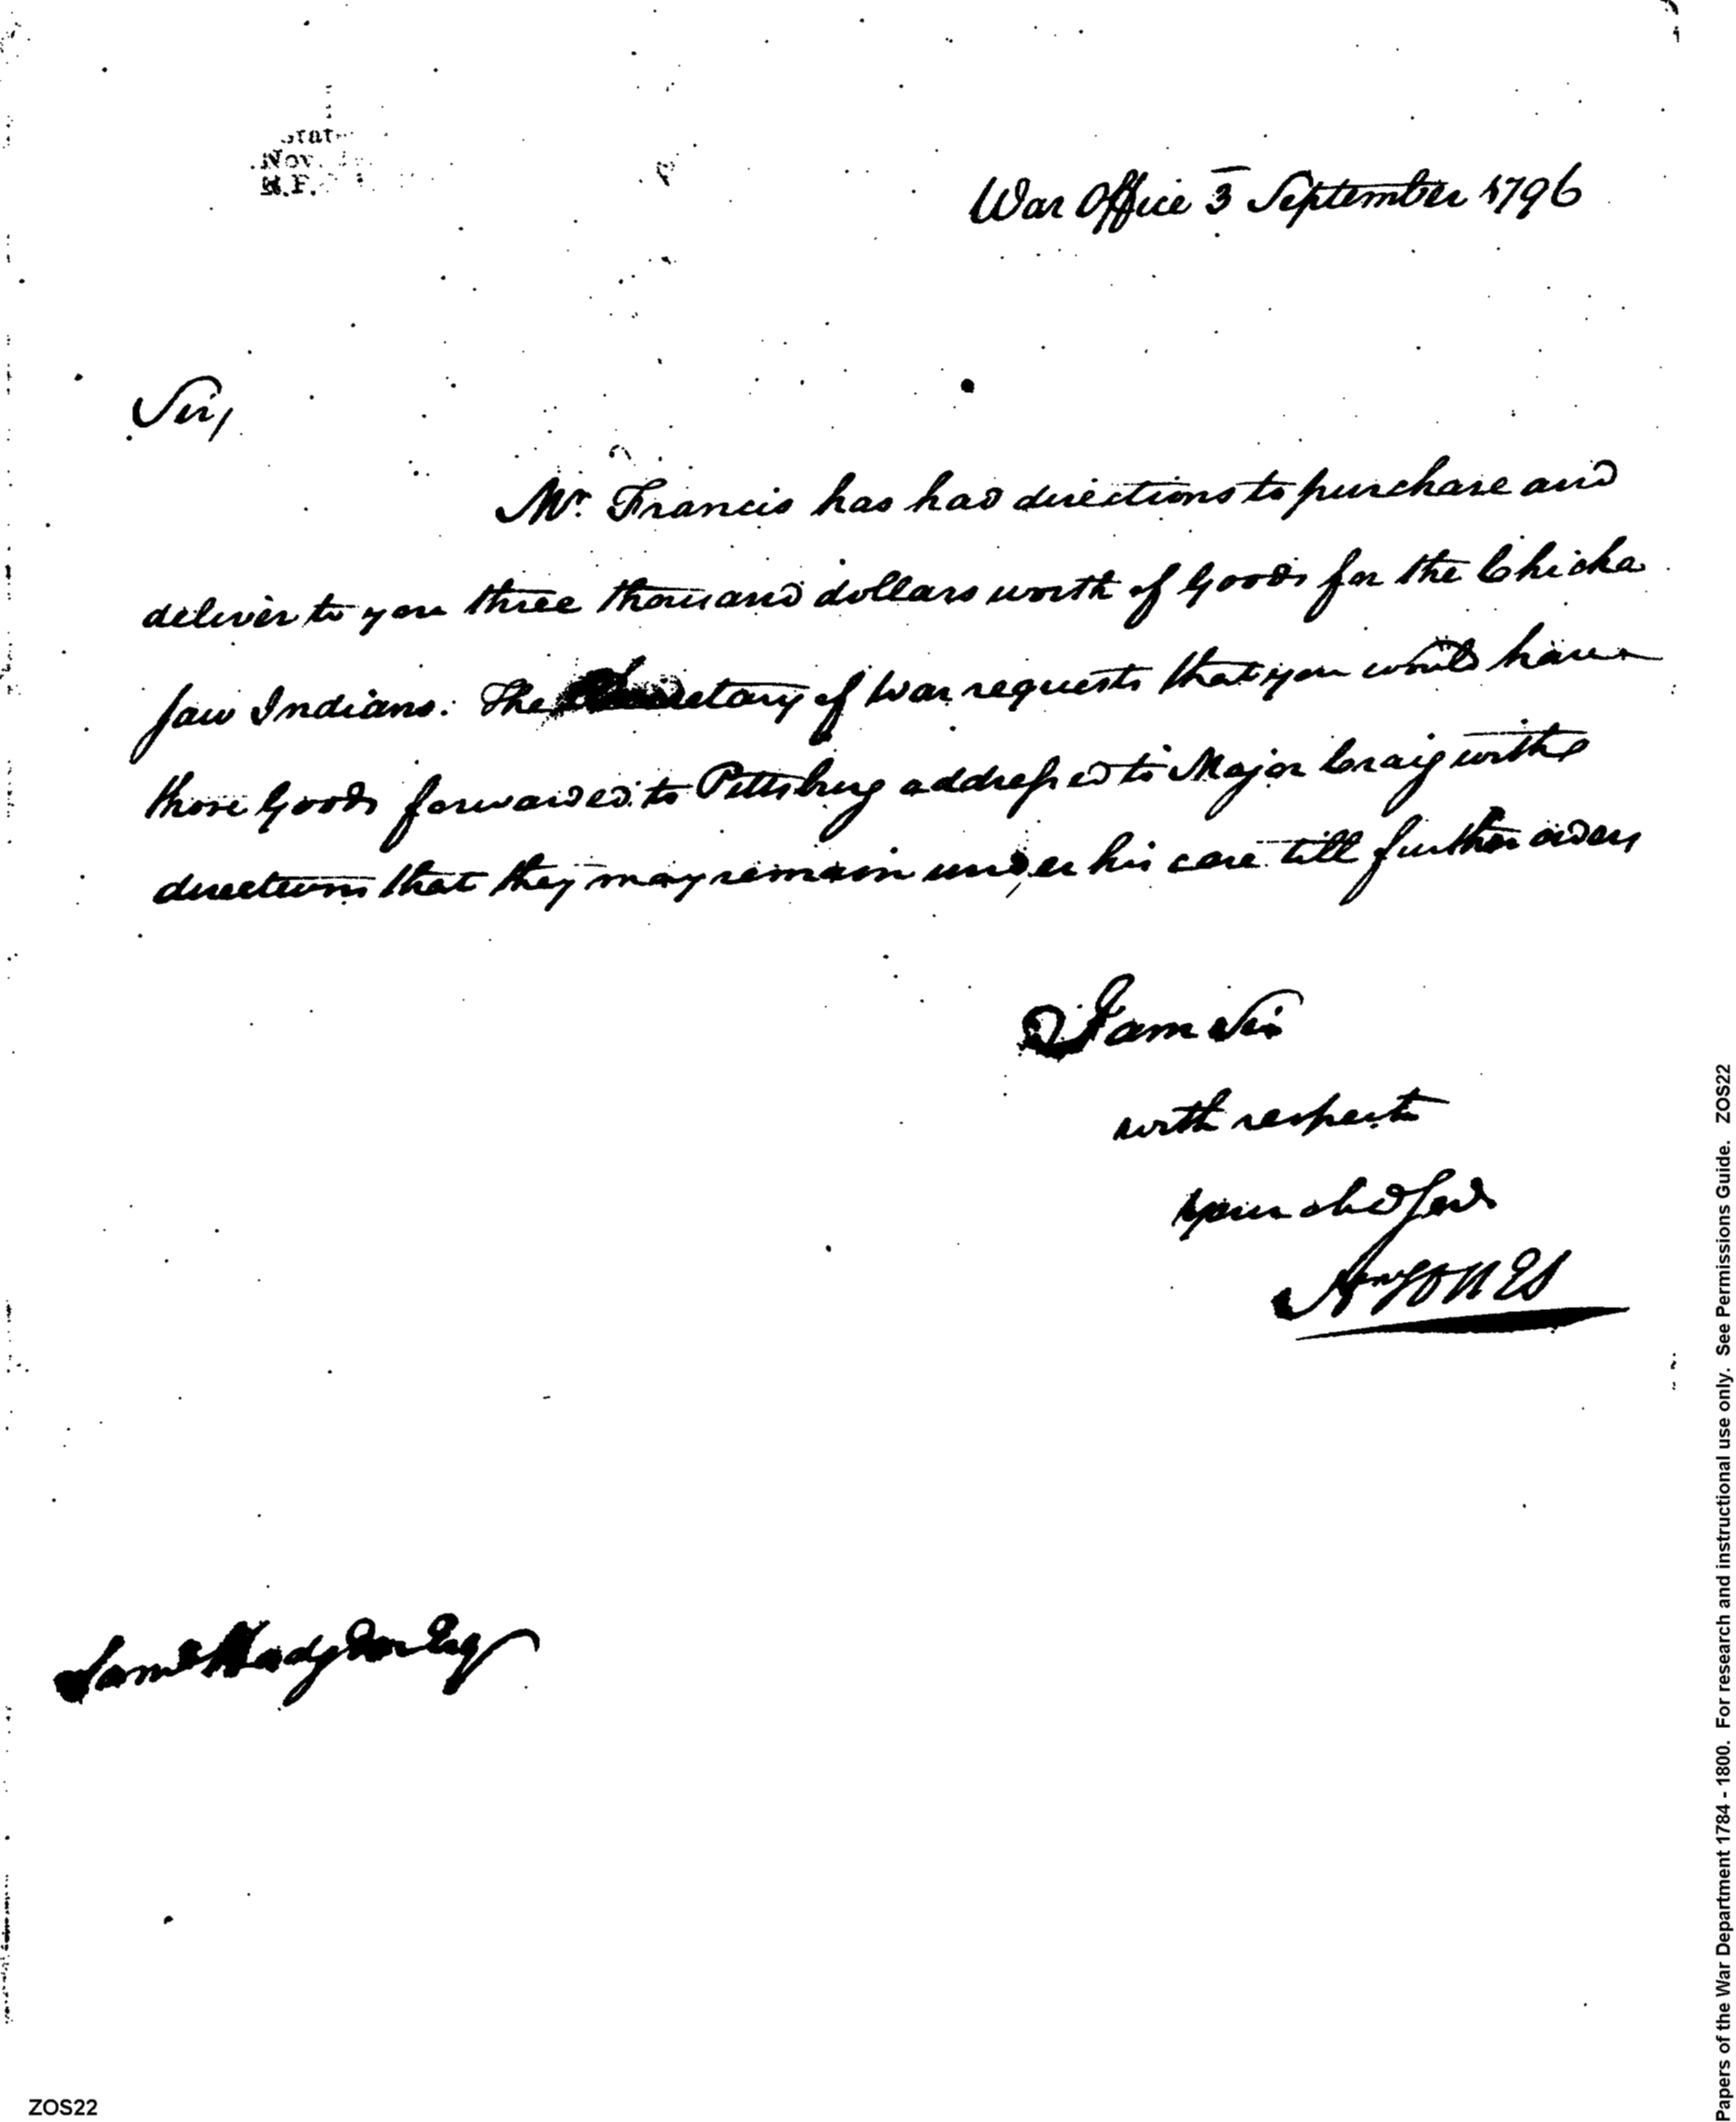 War Office 3 September 1796
Sir,
Mr. Francis has had directions to purchase and
deliver to you three thousand dollars worth of Goods for the Chicka
saw Indians. The Secretary of War requests that you would have
those Goods forwarded to Pittsburg addressed to Major Craig with
directions that they may remain under his care till further orders
I am Sir
with respect
your obd Serv
Jno Jones
Saml Hodgdon Esq
Nov
Papers of the War Department 1784 - 1800. For research and instructional use only. See Permissions Guide. ZOS22
ZOS22